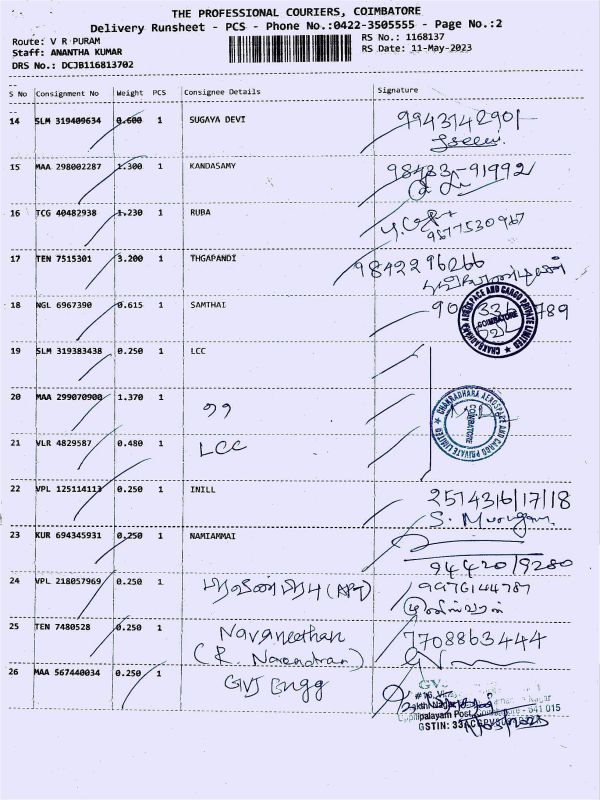 THE PROFESSIONAL COURIERS, COIMBATORE
Delivery Runsheet - PCS - Phone No.:0422-3505555 - Page No.:2
Route: V R PURAM
RS No.: 1168137
Staff: ANANTHA KUMAR
RS Date: 11-May-2023
DRS No.: DCJB116813702
S No Consignment No Weight PCS Consignee Details Signature
14 SLM 319409634 0.600 1 SUGAYA DEVI 9943142901
15 MAA 298002287 1.300 1 KANDASAMY 98483-91992
16 TCG 40482938 1.230 1 RUBA
9577530967
17 TEN 7515301 3.200 1 THGAPANDI 9842296266
18 NGL 6967390 0.615 1 SAMTHAI
CHAKRADHARA AEROSPACE AND CARGO PRIVATE LIMITED
COIMBATORE
19 SLM 319383438 0.250 1 LCC
20 MAA 299070900 1.370 1 ,,
CHAKRADHARA AEROSPACE AND CARGO PRIVATE LIMITED
COIMBATORE
21 VLR 4829587 0.480 1 LCC
22 VPL 125114113 0.250 1 INILL 2574316/17/18
S. Murugan
23 KUR 694345931 0.250 1 NAMIAMMAI
94420/9280
24 VPL 218057969 0.250 1 (APT) 9976144787
25 TEN 7480528 0.250 1 Navaneethan 7708863444
(R. Narendran)
26 MAA 567440034 0.250 1 GVJ Engg
Uppilipalayam Post, Coimbatore - 641 015
GSTIN: